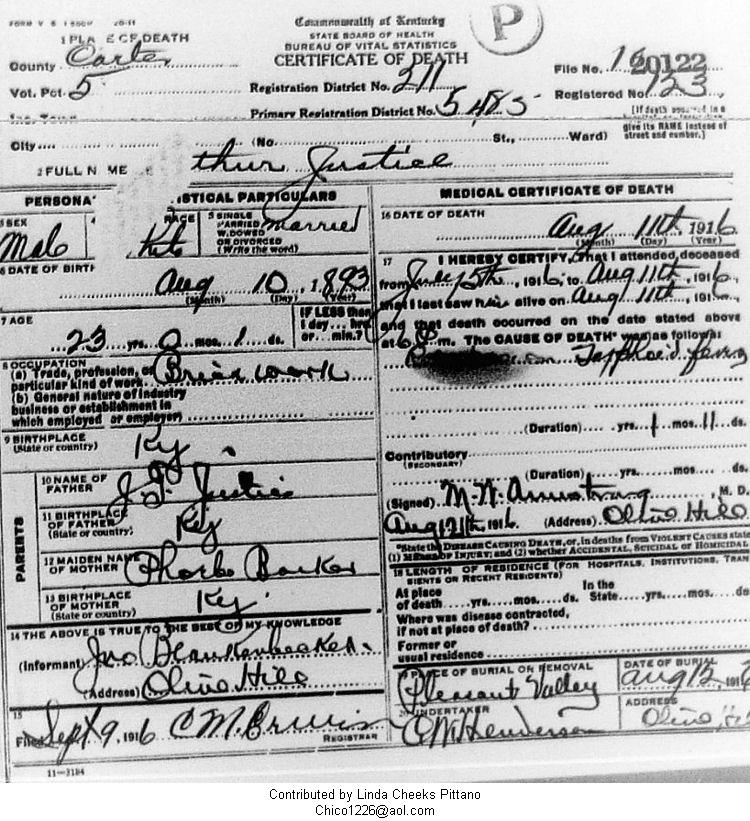 Commonwealth of Kentucky
STATE BOARD OF HEALTH
BUREAU OF VITAL STATISTICS
CERTIFICATE OF DEATH
P
1 PLACE OF DEATH
County Carter
Vot. Pct. 5
Registration District No. 211
Primary Registration District No. 5485
File No. 20122
Registered No. 123
[If death occurred in a
give its NAME instead of
street and number.]
City (No. St., Ward)
2 FULL NAME thur Justice
PERSONA ISTICAL PARTICULARS
SEX
Male
RACE
5 SINGLE
MARRIED
WIDOWED
OR DIVORCED
(Write the word)
married
6 DATE OF BIRTH
Aug 10, 1893
(Month) (Day) (Year)
7 AGE
23 yrs. 0 mos. 1 ds.
IF LESS than
1 day, hrs
or min.?
8 OCCUPATION
(a) Trade, profession, or
particular kind of work Brick work
(b) General nature of industry
business or establishment in
which employed or employer)
9 BIRTHPLACE
(State or country) Ky
PARENTS
10 NAME OF
FATHER J. F. Justice
11 BIRTHPLACE
OF FATHER
(State or country) Ky
12 MAIDEN NAME
OF MOTHER Phoebe Barker
13 BIRTHPLACE
OF MOTHER
(State or country) Ky.
14 THE ABOVE IS TRUE TO THE BEST OF MY KNOWLEDGE
(Informant) Jno Blankenbeker
(Address) Olive Hill
15
Filed Sept 9, 1916
REGISTRAR
11-3184
MEDICAL CERTIFICATE OF DEATH
16 DATE OF DEATH
Aug 11th 1916
(Month) (Day) (Year)
17 I HEREBY CERTIFY, that I attended deceased
from July 5th, 1916, to Aug 11th, 1916,
that I last saw him alive on Aug 11th, 191
and that death occurred on the date stated above
at 6 P. m. The CAUSE OF DEATH* was as follows:
(Duration) yrs. 1 mos. 11 ds.
Contributory
(SECONDARY)
(Duration) yrs. mos. ds.
(Signed) M. W. Armstrong, M. D.
1916 (Address) Olive Hill
*State the DISEASE CAUSING DEATH, or, in deaths from VIOLENT CAUSES state
(1) MEANS OF INJURY; and (2) whether ACCIDENTAL, SUICIDAL or HOMICIDAL
18 LENGTH OF RESIDENCE (FOR HOSPITALS, INSTITUTIONS, TRAN
SIENTS OR RECENT RESIDENTS)
At place In the
of death yrs. mos. ds. State yrs. mos. ds
Where was disease contracted,
if not at place of death?
Former or
usual residence
PLACE OF BURIAL OR REMOVAL
Pleasant Valley
DATE OF BURIAL
Aug 12, 191
20 UNDERTAKER
C. W. Henderson
ADDRESS
Olive Hi
Contributed by Linda Cheeks Pittano
Chico1226@aol.com